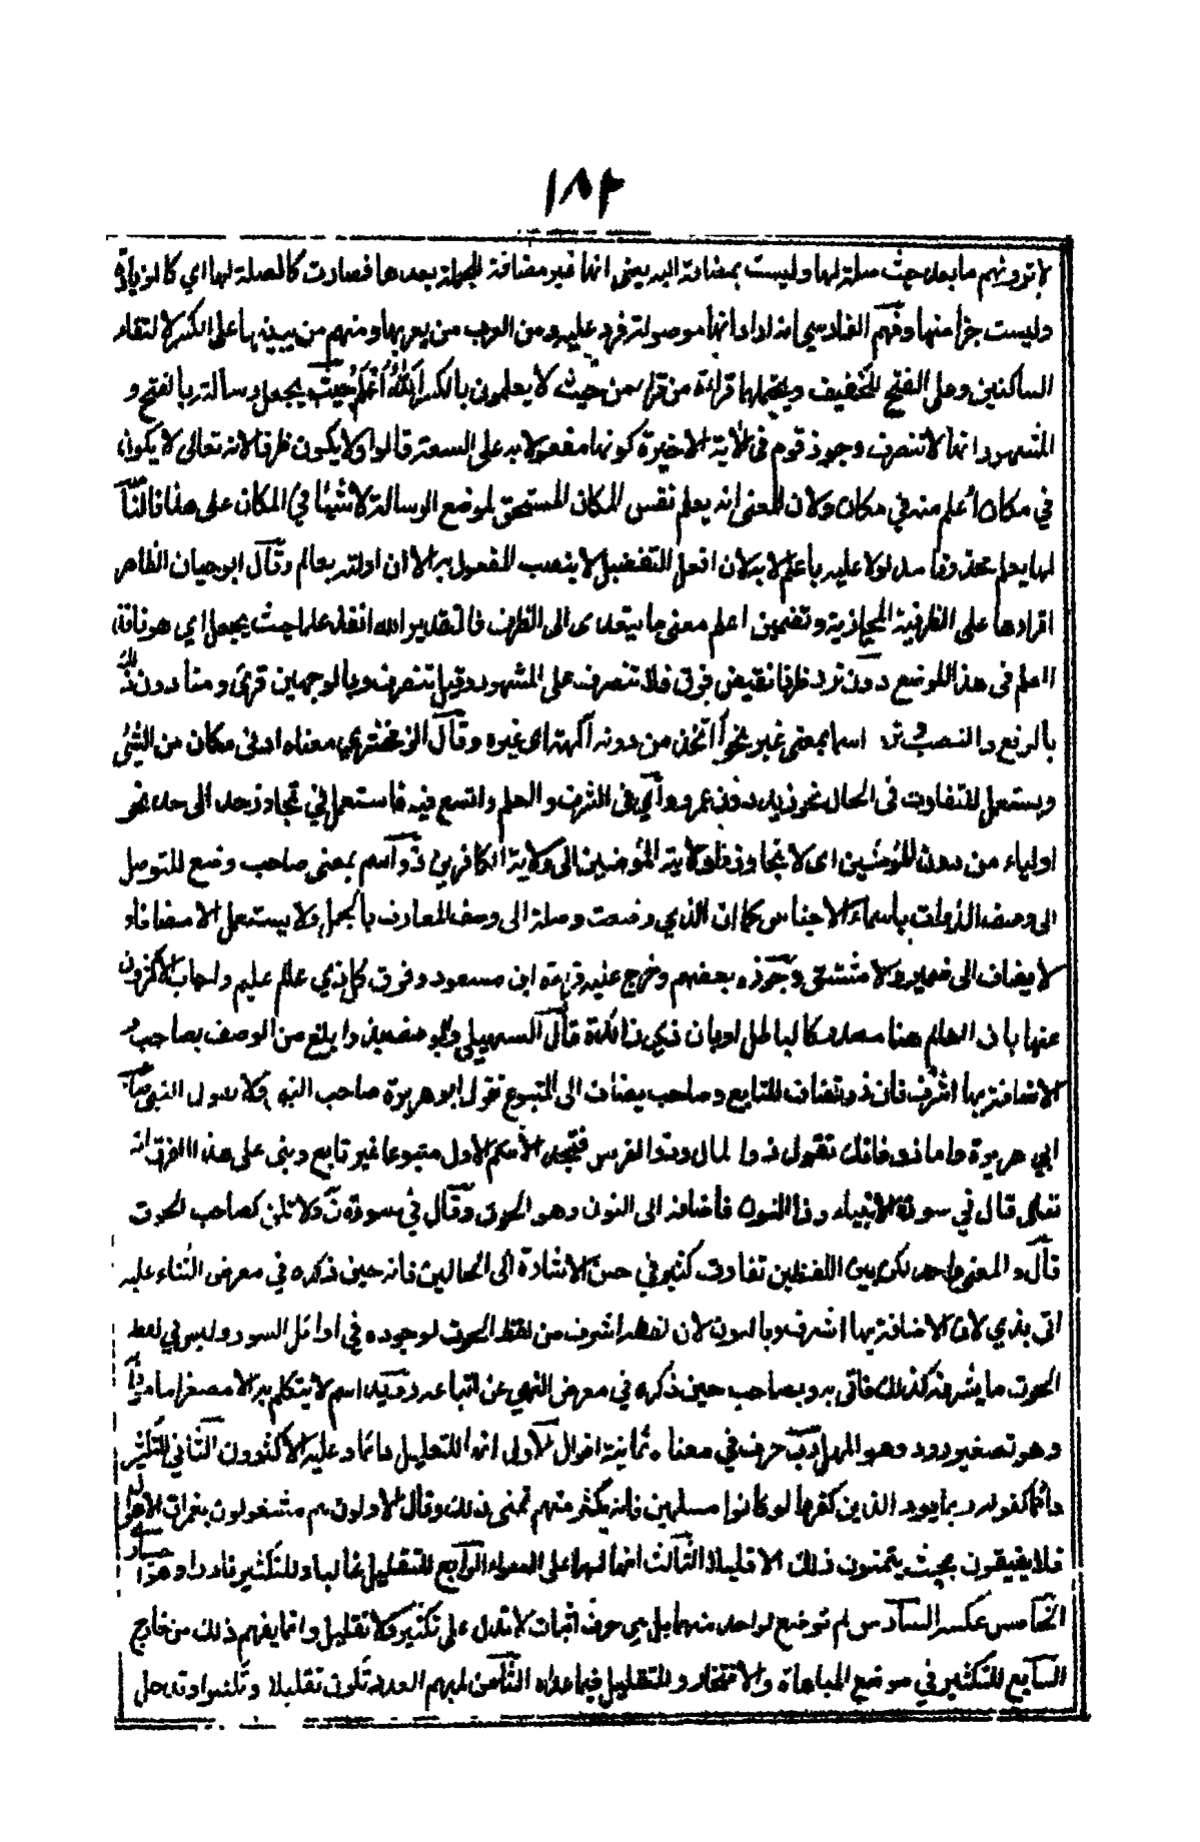 ١٨٢
لا ترونهم ما بعد حيث صلة لها وليست بمضافة اليه يعني انها غير مضافة للجملة بعدها فصارت كالصلة لها اي كالزيادة
وليست جزأ منها وفهم الفارسي انه اراد انها موصولة فرد عليه ومن العرب من يعربها ومنهم من يبنيها على الكسر لالتقاء
الساكنين وعلى الفتح للتخفيف ويحتملها قراءة من قرأ من حيث لا يعلمون بالكسر الله اعلم حيث يجعل رسالته بالفتح و
المشهور انها لا تتصرف وجوز قوم في الآية الاخيرة كونها مفعولا به على السعة قالوا ولا يكون ظرفا لانه تعالى لا يكون
في مكان أعلم منه في مكان ولان المعنى انه يعلم نفس المكان المستحق لموضع الرسالة لا شيئا في المكان على هذا فالناصب
لها يعلم محذوفا مدلولا عليه بأعلم لا به لان افعل التفضيل لا ينصب المفعول به الا ان اولته بعالم وقال ابو حيان الظاهر
اقرارها على الظرفية المجازية وتضمين اعلم معنى ما يتعدى الى الظرف فالتقدير الله انفذ علما حيث يجعل اي هو نافذ
العلم في هذا الموضع دون ترد ظرفا نقيض فوق فلا تتصرف على المشهور وقيل تتصرف وبالوجهين قرئ ومنا دون ذلك
بالرفع والنصب وترد اسما بمعنى غير نحو أاتخذ من دونه آلهة اي غيره وقال الزمخشري معناه ادنى مكان من الشئ
ويستعمل للتفاوت في الحال نحو زيد دون عمرو أي في الشرف والعلم واتسع فيه فاستعمل في تجاوز حد الى حد نحو
اولياء من دون المؤمنين اى لا تجاوزوا ولاية المؤمنين الى ولاية الكافرين ذو اسم بمعنى صاحب وضع للتوصل
الى وصف الذوات بأسماء الاجناس كما ان الذي وضعت وصلة الى وصف المعارف بالجمل ولا يستعمل الا مضافا و
لا يضاف الى ضمير ولا مشتق وجوزه بعضهم وخرج عليه قراءة ابن مسعود وفوق كل ذي عالم عليم واجاب الاكثرون
عنها بان العالم هنا مصدر كالباطل او بان ذي زائدة قال السهيلي والوصف بذو ابلغ من الوصف بصاحب و
الاضافة بها اشرف فان ذو تضاف للتابع وصاحب يضاف الى المتبوع تقول ابو هريرة صاحب النبي ولا تقول النبي صاحب
ابي هريرة واما ذو فانك تقول ذو المال وذو الفرس فتجد الاسم الاول متبوعا غير تابع وبني على هذا الفرق انه
تعالى قال في سورة الانبياء وذا النون فأضافه الى النون وهو الحوت وقال في سورة ن ولا تكن كصاحب الحوت
قال والمعنى واحد لكن بين اللفظين تفاوت كثير في حسن الاشارة الى الحالين فانه حين ذكره في معرض الثناء عليه
اتى بذي لان الاضافة بها اشرف وبالنون لان لفظه اشرف من لفظ الحوت لوجوده في اوائل السور وليس في لفظ
الحوت ما يشرفه كذلك فأتى به وبصاحب حين ذكره في معرض النهي عن اتباعه رويد اسم لا يتكلم به الا مصغرا مأمورا به
وهو تصغير رود وهو المهل رب حرف في معناه ثمانية اقوال الاول انها للتقليل دائما وعليه الاكثرون الثاني للتكثير
دائما كقوله ربما يود الذين كفروا لو كانوا مسلمين فانه يكثر منهم تمني ذلك وقال الاولون هم مشغولون بغمرات الاهوال
فلا يفيقون بحيث يتمنون ذلك الا قليلا الثالث انها لهما على السواء الرابع للتقليل غالبا وللتكثير نادرا وهو اختياري
الخامس عكسه السادس لم توضع لواحد منهما بل هي حرف اثبات لا تدل على تكثير ولا تقليل وانما يفهم ذلك من خارج
السابع للتكثير في موضع المباهاة والافتخار وللتقليل فيما عداه الثامن لمبهم العدد تكون تقليلا وتكثيرا وتدخل